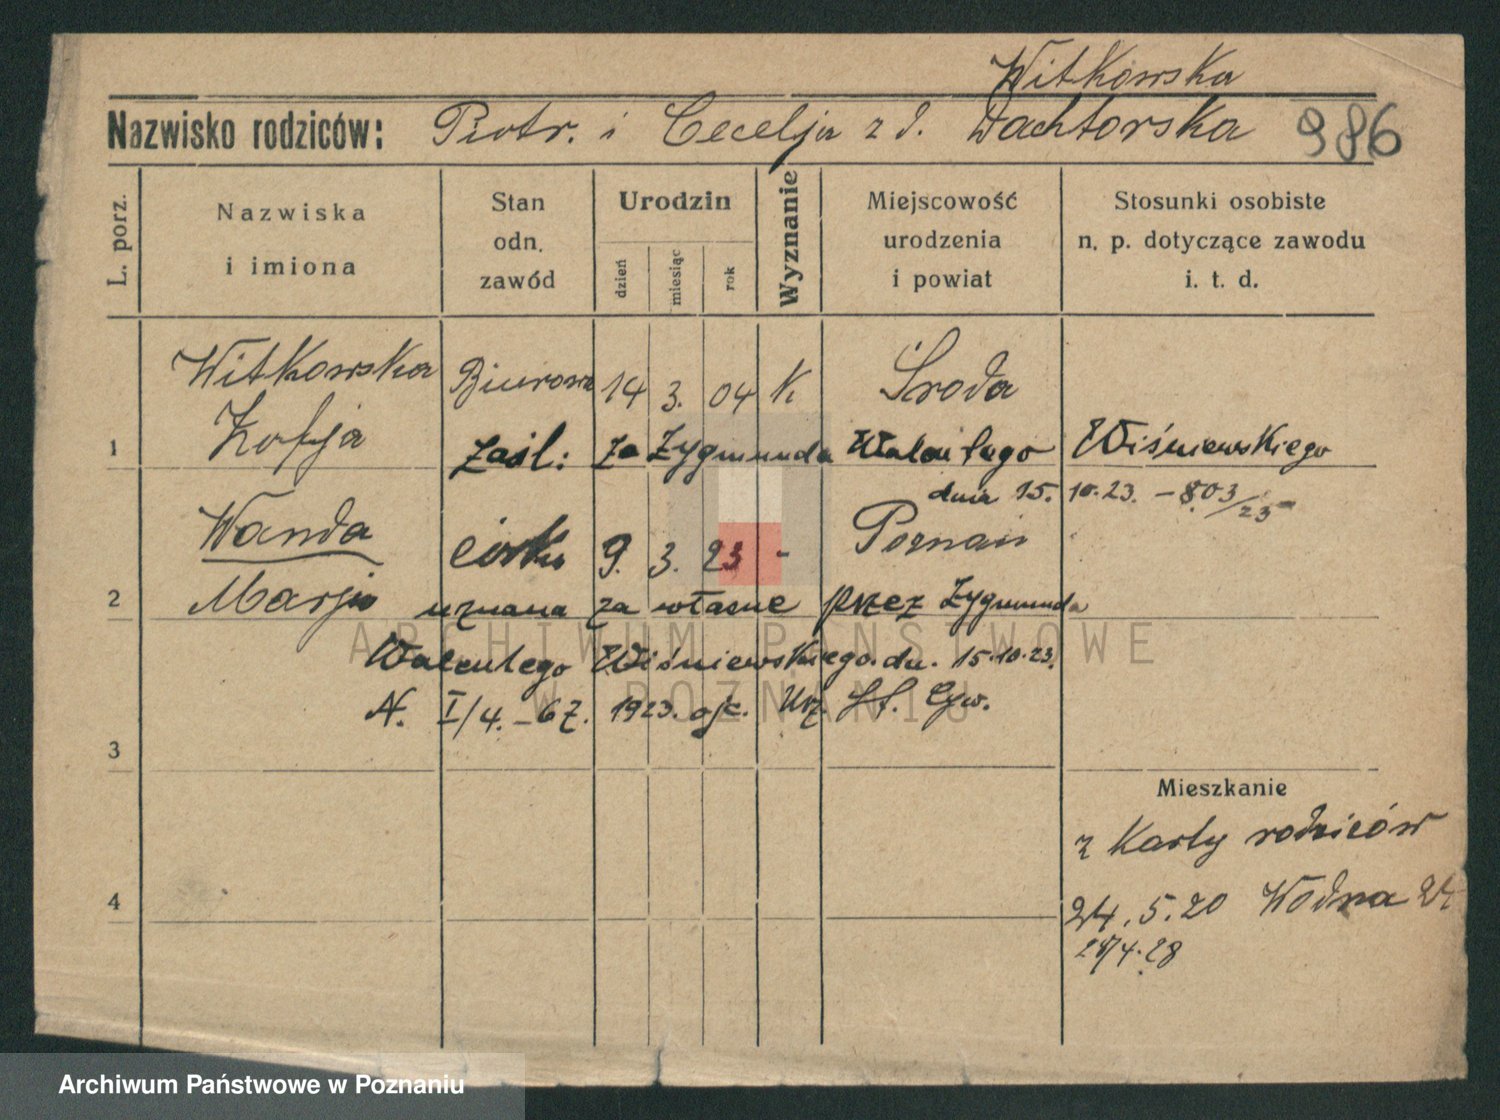 Witkowska
Nazwisko rodziców: Piotr. i Cecelja z d. Wachtorska 986
L. porz.
Nazwiska
i imiona
Stan
odn.
zawód
Urodzin
dzień
miesiąc
rok
Wyznanie
Miejscowość
urodzenia
i powiat
Stosunki osobiste
n. p. dotyczące zawodu
i. t. d.
Witkowska Biurowa 14 3. 04 K Środa
1 Zofja zaśl: za Zygmunda Walentego Wiśniewskiego
dnia 15. 10.23. – 803/23
Wanda córka 9. 3. 23 - Poznań
2 Marja uznana za własne przez Zygmunda
Walentego Wiśniewskiego. dn. 15.10.23.
N. I/4. – 67. 1923. Urz St. Cyw.
3
Mieszkanie
z Karty rodziców
4
24. 5. 20 Wodna 24
28/4. 28
ARCHIWUM PAŃSTWOWE
W POZNANIU
Archiwum Państwowe w Poznaniu